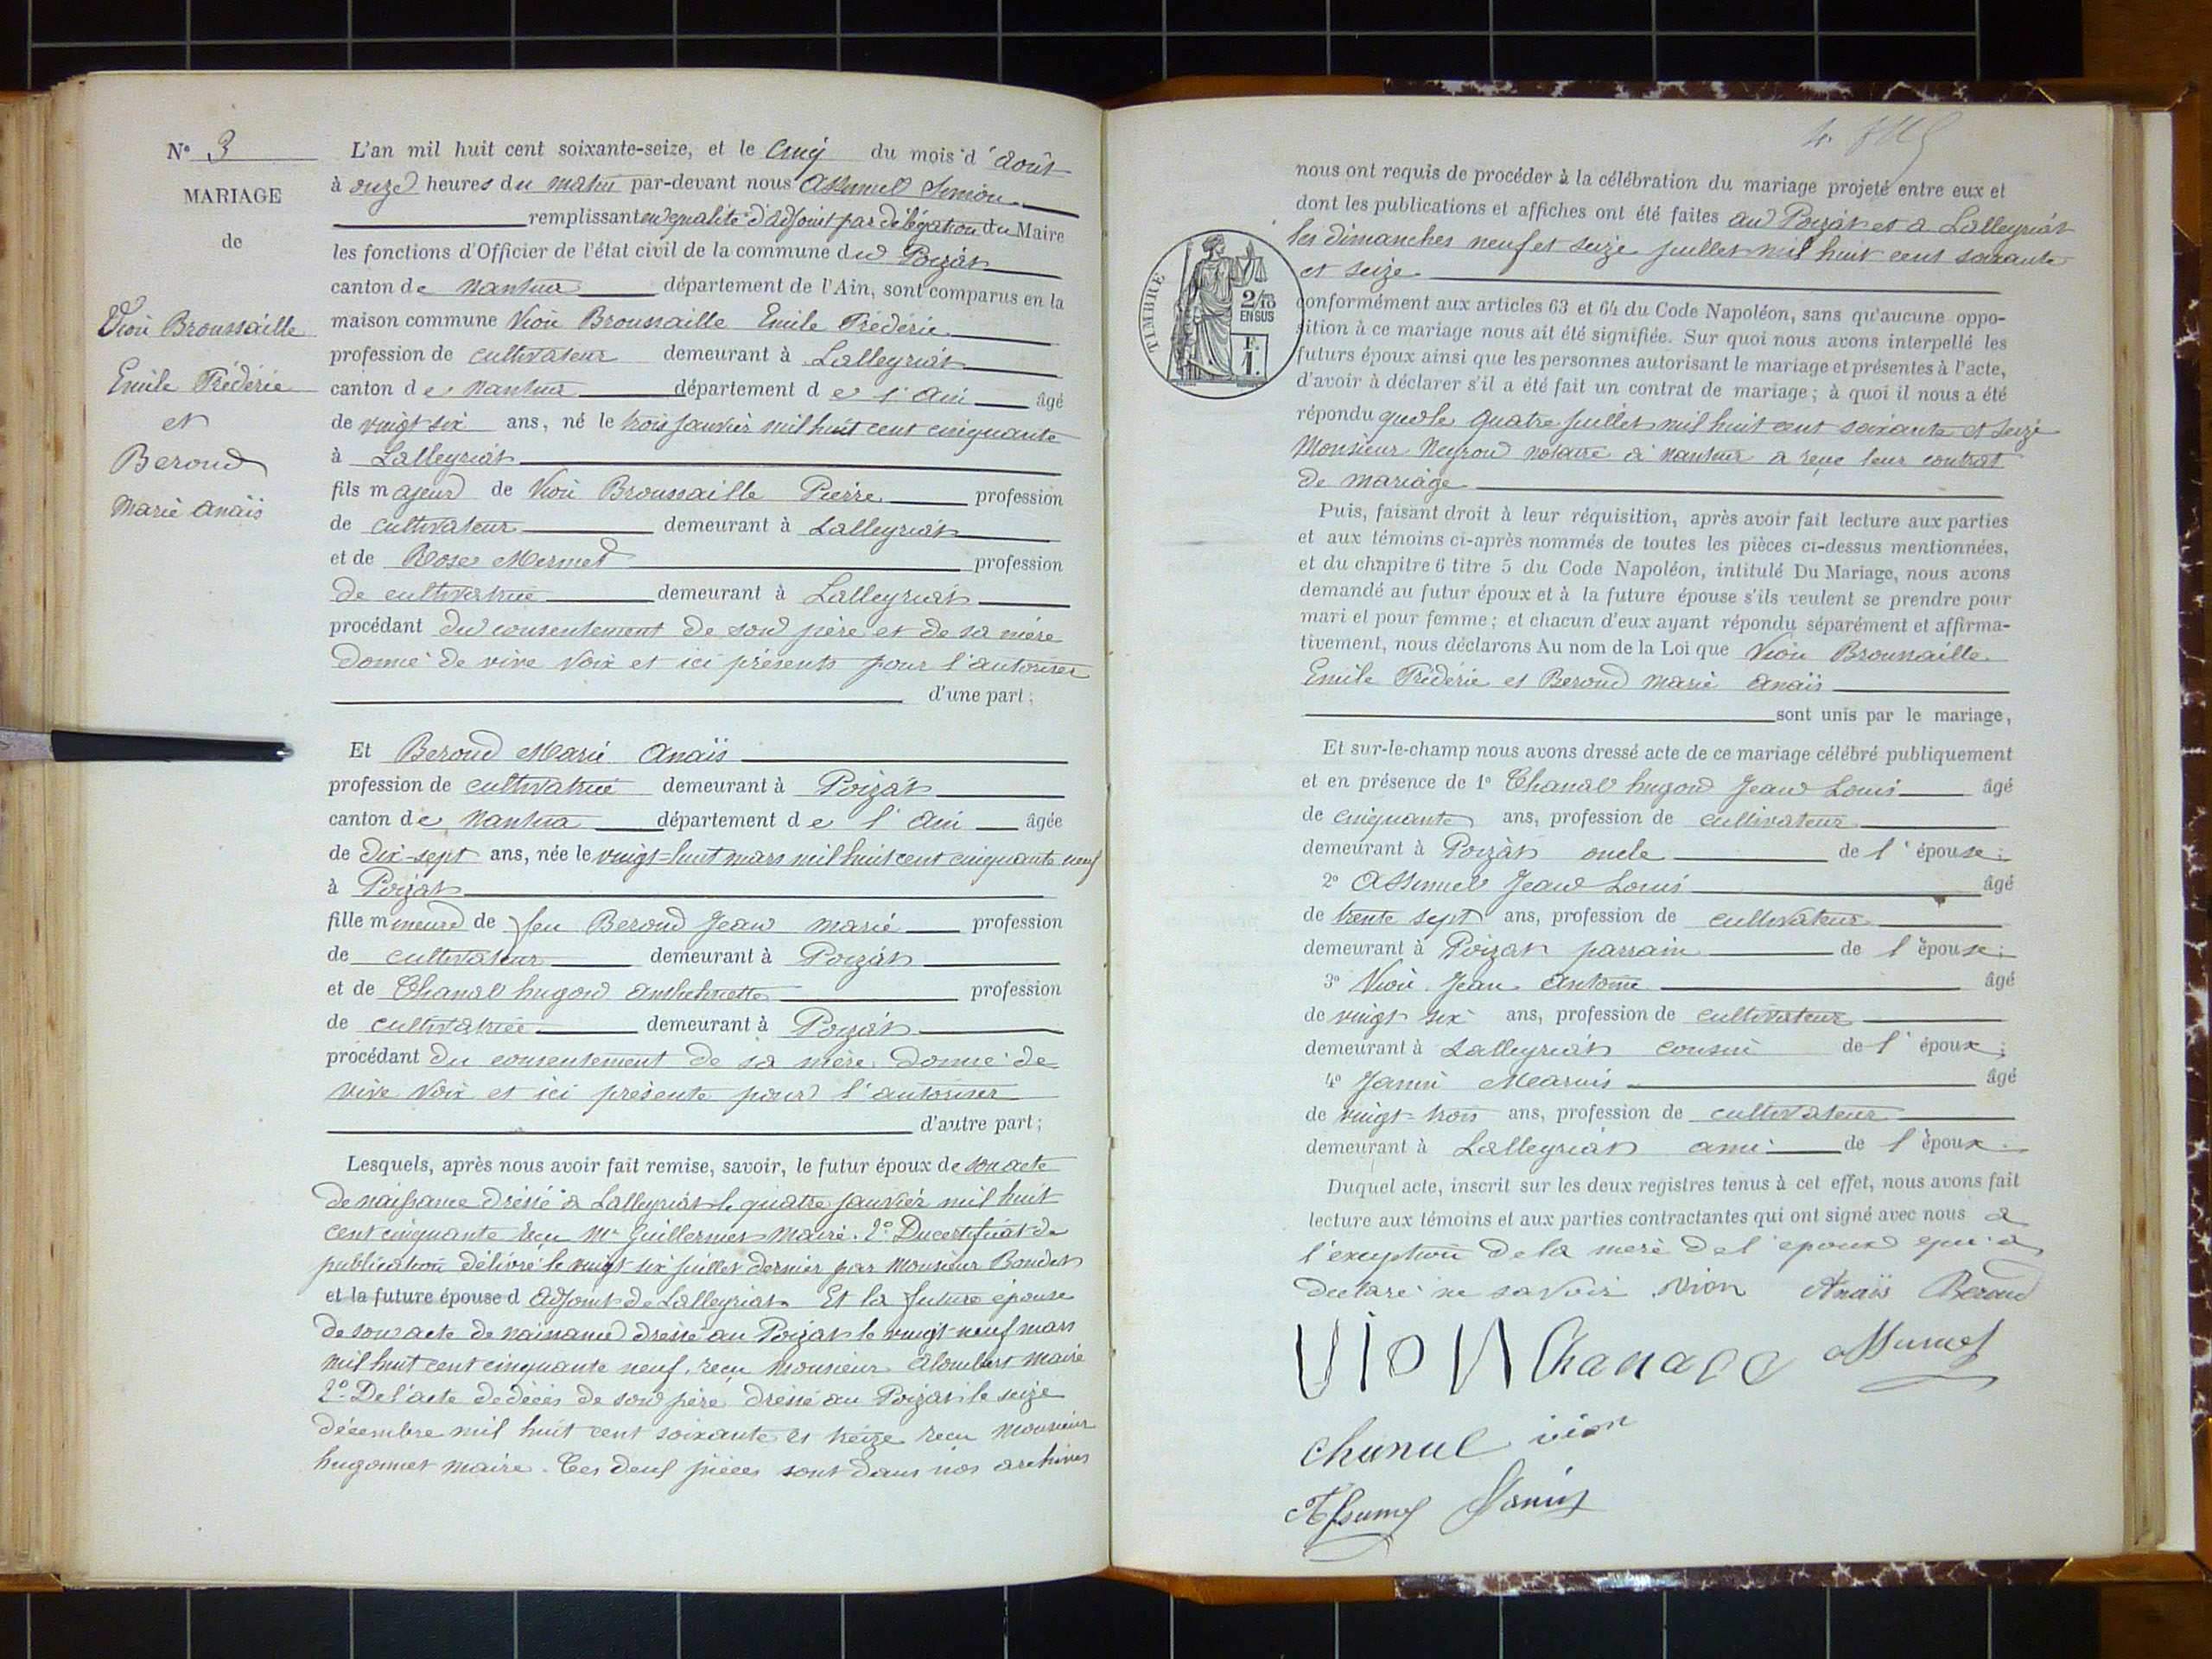 N° 3
MARIAGE
de
Vion Broussaille
Emile Frédéric
et
Beroud
Marie Anaïs
L'an mil huit cent soixante-seize, et le Cinq du mois d'août
à onze heures du matin par-devant nous Assumel Simon
remplissant en qualité d'adjoint par délégation du Maire
les fonctions d'Officier de l'état civil de la commune du Poizat
canton de Nantua département de l'Ain, sont comparus en la
maison commune Vion Broussaille Emile Frédéric
profession de cultivateur demeurant à Lalleyriat
canton de Nantua département de l'Ain âgé
de vingt six ans, né le trois janvier mil huit cent cinquante
à Lalleyriat
fils majeur de Vion Broussaille Pierre profession
de cultivateur demeurant à Lalleyriat
et de Rose Mermet profession
de cultivatrice demeurant à Lalleyriat
procédant du consentement de son père et de sa mère
donné de vive voix et ici présents pour l'autoriser
d'une part;
Et Beroud Marie Anaïs
profession de cultivatrice demeurant à Poizat
canton de Nantua département de l'Ain âgée
de dix-sept ans, née le vingt=huit mars mil huit cent cinquante neuf
à Poizat
fille mineure de feu Beroud Jean Marie profession
de cultivateur demeurant à Poizat
et de Chanal hugon profession
de cultivatrice demeurant à Poizat
procédant du consentement de sa mère donné de
vive voix et ici présente pour l'autoriser
d'autre part;
Lesquels, après nous avoir fait remise, savoir, le futur époux de son acte
de naissance dressé à Lalleyriat le quatre janvier mil huit
cent cinquante reçu Mr Guillermet Maire. 2° Du certificat de
publication délivré le vingt six juillet dernier par Monsieur Baudet
et la future épouse d adjoint de Lalleyriat. Et la future épouse
de son acte de naissance dressé au Poizat le vingt-neuf mars
mil huit cent cinquante neuf, reçu Monsieur Alombert maire
2° De l'acte de décès de son père dressé au Poizat le seize
décembre mil huit cent soixante et treize reçu Monsieur
hugonnet maire. Ces deux pièces sont dans nos archives
nous ont requis de procéder à la célébration du mariage projeté entre eux et
dont les publications et affiches ont été faites au Poizat et à Lalleyriat
les dimanches neuf et seize juillet mil huit cent soixante
et seize
TIMBRE
2/10
EN SUS
F.
1.
conformément aux articles 63 et 64 du Code Napoléon, sans qu'aucune oppo-
sition à ce mariage nous ait été signifiée. Sur quoi nous avons interpellé les
futurs époux ainsi que les personnes autorisant le mariage et présentes à l'acte,
d'avoir à déclarer s'il a été fait un contrat de mariage; à quoi il nous a été
répondu que le quatre juillet mil huit cent soixante et seize
Monsieur Neyron notaire à Nantua a reçu leur contrat
de mariage
Puis, faisant droit à leur réquisition, après avoir fait lecture aux parties
et aux témoins ci-après nommés de toutes les pièces ci-dessus mentionnées,
et du chapitre 6 titre 5 du Code Napoléon, intitulé Du Mariage, nous avons
demandé au futur époux et à la future épouse s'ils veulent se prendre pour
mari et pour femme; et chacun d'eux ayant répondu séparément et affirma-
tivement, nous déclarons Au nom de la Loi que Vion Broussaille
Emile Frédéric et Beroud Marie Anaïs
sont unis par le mariage,
Et sur-le-champ nous avons dressé acte de ce mariage célébré publiquement
et en présence de 1° Chanal hugon Jean Louis âgé
de cinquante ans, profession de cultivateur
demeurant à Poizat oncle de l'épouse;
2° Assumel Jean Louis âgé
de trente sept ans, profession de cultivateur
demeurant à Poizat parrain de l'épouse;
3° Vion Jean Antoine âgé
de vingt six ans, profession de cultivateur
demeurant à Lalleyriat cousin de l'époux;
4° Janin Marius âgé
de vingt=trois ans, profession de cultivateur
demeurant à Lalleyriat ami de l'époux
Duquel acte, inscrit sur les deux registres tenus à cet effet, nous avons fait
lecture aux témoins et aux parties contractantes qui ont signé avec nous à
l'exception de la mère de l'époux qui a
déclaré ne savoir Vion Anaïs Beroud
VION Chanal Assumel
Chanal vion
Assumel Janin